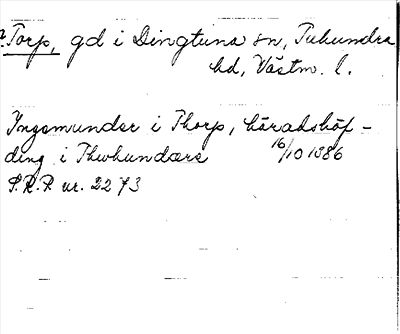 ? Torp, gd i Dingtuna sn, Tuhundra
hd, Västm. l.
Yngemunder i Thorp, häradshöf-
ding i Thwhundære 16/10 1386
S.R.P. nr. 2273